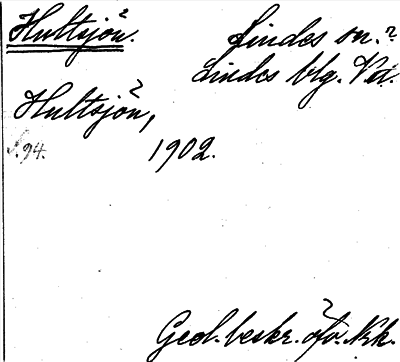 Hultsjön. Lindes sn.
Lindes blg. Vd.
Hultsjön,
s. 94. 1902.
Geol. beskr. öfv. Nrk.